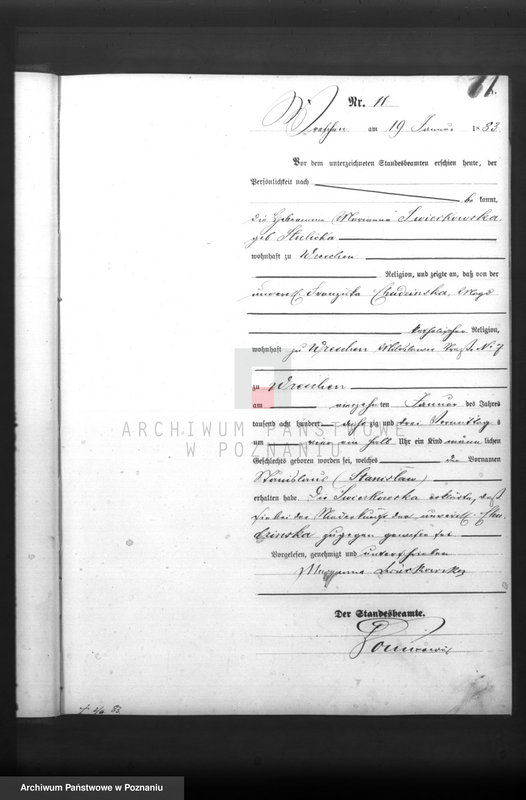 11
Nr. 11
Wreschen am 19 Januar 1883.
Vor dem unterzeichneten Standesbeamten erschien heute, der
Persönlichkeit nach
be kannt,
die Hebeamme Marianna Swierkowska
geb
wohnhaft zu Wreschen
Religion, und zeigte an, daß von der
unverehl. Franziska Chudzinska, Magd
katholischer Religion,
wohnhaft zu Wreschen Miloslawer Straße No 7
zu Wreschen
am ten Januar des Jahres
tausend acht hundert achtzig und drei Vormittags
um vier ein halb Uhr ein Kind männ lichen
Geschlechts geboren worden sei, welches den Vornamen
Stanislaus (Stanisław)
erhalten habe. Die Swierkowska erklärte, daß
sie bei der Niederkunft der unverehl. Chu-
dzinska zugegen gewesen sei
Vorgelesen, genehmigt und unterschrieben
Maryanna
Der Standesbeamte.
ARCHIWUM PAŃSTWOWE
W POZNANIU
Archiwum Państwowe w Poznaniu